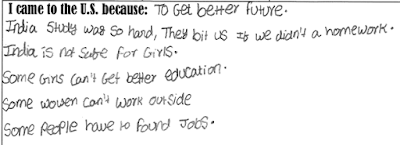 I came to the U.S. because: To Get better future.
India Study was so hard, They bit us if we didn't a homework.
India is not safe for Girls.
Some Girls can't Get better education.
Some women can't work outside
Some people have to found Jobs.